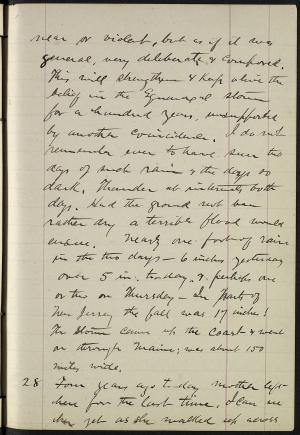 near or violent, but as if it was
general, very deliberate & composed.
This will strengthen & keep alive the
belief in the Equinoxial storm
for a hundred years, unsupported
by another coincidence. I do not
remember ever to have seen two
days of such rain & the days so
dark. Thunder at intervals both
days. Had the ground not been
rather dry a terrible flood would
ensue. Nearly one foot of rain
in the two days - 6 inches yesterday
over 5 in. to-day, & perhaps one
or two on Thursday - In part of
New Jersey the fall was 17 inches!
The storm came up the coast & went
on through Maine; was about 150
miles wide.
28 Four years ago to-day mother left
here for the last time. I can see
her yet as she walked up across